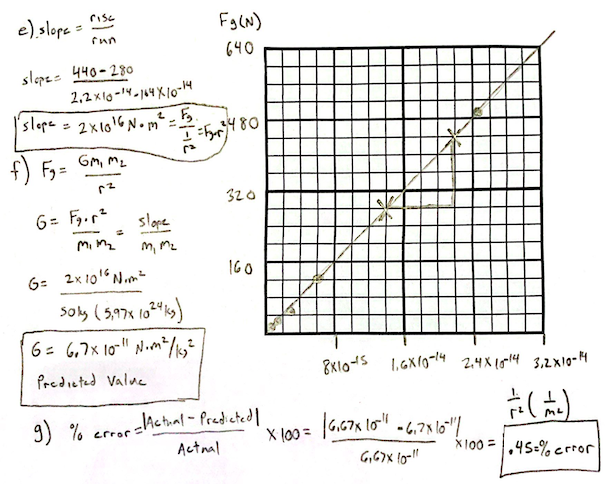 e) slope = rise / run
slope = 440-280 / 2.2x10^-14 - 1.4x10^-14
slope = 2x10^16 N•m^2 = Fg / (1/r^2) = Fg•r^2
f) Fg = Gm1m2 / r^2
G = Fg•r^2 / m1m2 = slope / m1m2
G = 2x10^16 N•m^2 / 50kg (5.97x10^24 kg)
G = 6.7x10^-11 N•m^2/kg^2
Predicted Value
Fg(N)
640
480
320
160
8x10^-15 1.6x10^-14 2.4x10^-14 3.2x10^-14
1/r^2 (1/m^2)
g) % error = |Actual - Predicted| / Actual x100 = |6.67x10^-11 - 6.7x10^-11| / 6.67x10^-11 x100 = .45=% error